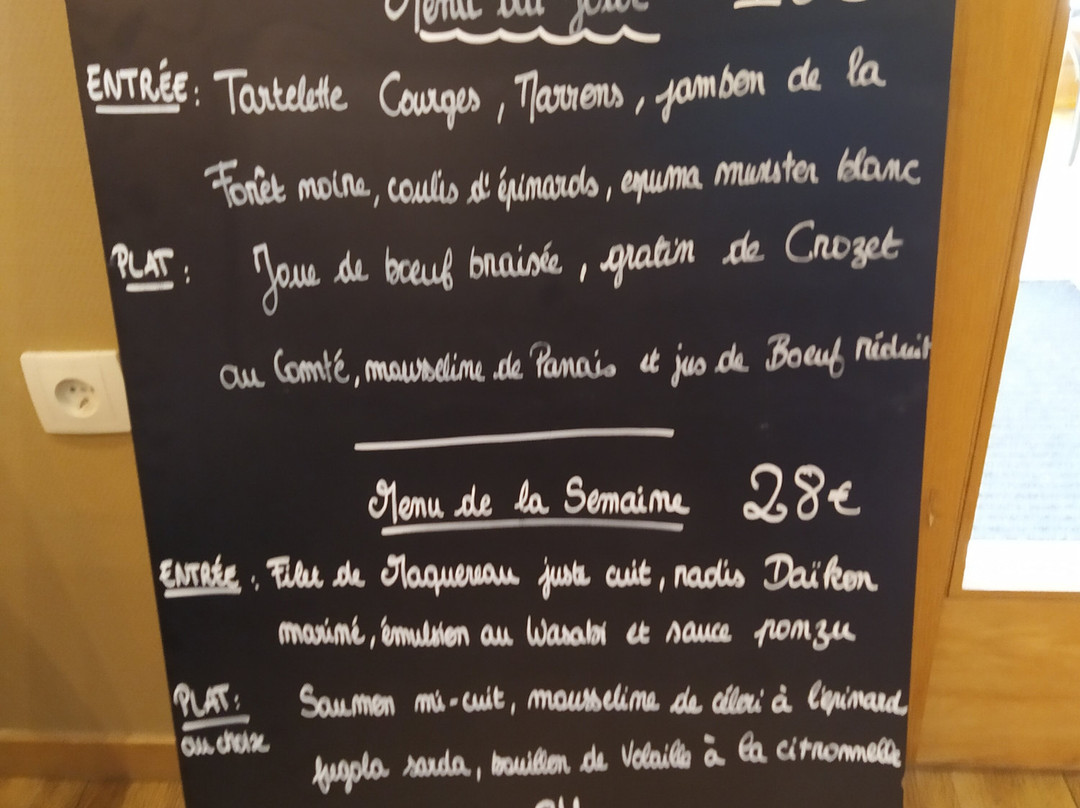 Menu du jour
ENTRÉE : Tartelette Courges, Marrons, jambon de la
Forêt noire, coulis d'épinards, espuma munster blanc
PLAT : Joue de bœuf braisée, gratin de Crozet
au Comté, mousseline de Panais et jus de Boeuf réduit
Menu de la Semaine 28€
ENTRÉE : Filet de Maquereau juste cuit, radis Daïkon
mariné, émulsion au Wasabi et sauce ponzu
PLAT : Saumon mi-cuit, mousseline de céleri à l'épinard
au choix
fregola sarda, bouillon de Volaille à la citronnelle
OU